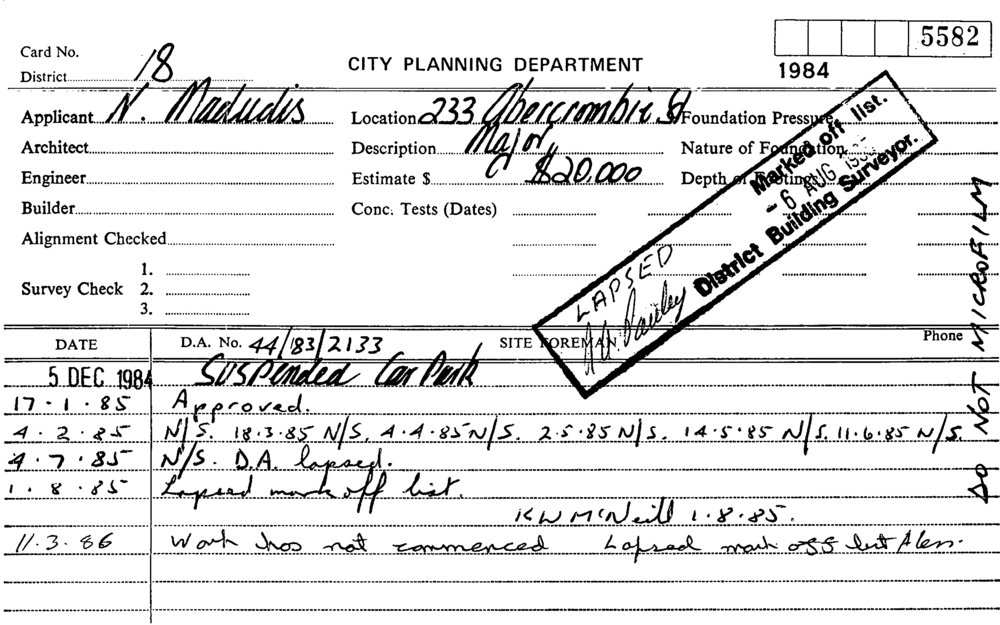 5582
Card No.
District 18
CITY PLANNING DEPARTMENT
1984
Applicant N. Madudis
Location 233 Abercrombie St
Foundation Pressure
Architect
Description Major
Nature of Foundation
Engineer
Estimate $ $20,000
Depth of Footings
Builder
Conc. Tests (Dates)
Alignment Checked
Survey Check
1.
2.
3.
Marked off list.
- 6 AUG
District Building Surveyor.
LAPSED
DO NOT MICROFILM
DATE
D.A. No. 44/183/2133
SITE FOREMAN
Phone
5 DEC 1984 Suspended Car Park
17 · 1 · 85 Approved.
4 · 2 · 85 N/S. 18.3.85 N/S. 4.4.85 N/S. 2.5.85 N/S. 14.5.85 N/S. 11.6.85 N/S.
4 · 7 · 85 N/S. D.A. lapsed.
1 · 8 · 85 Lapsed mark off list.
KW McNeill 1.8.85.
11.3.86 Work has not commenced Lapsed mark off list